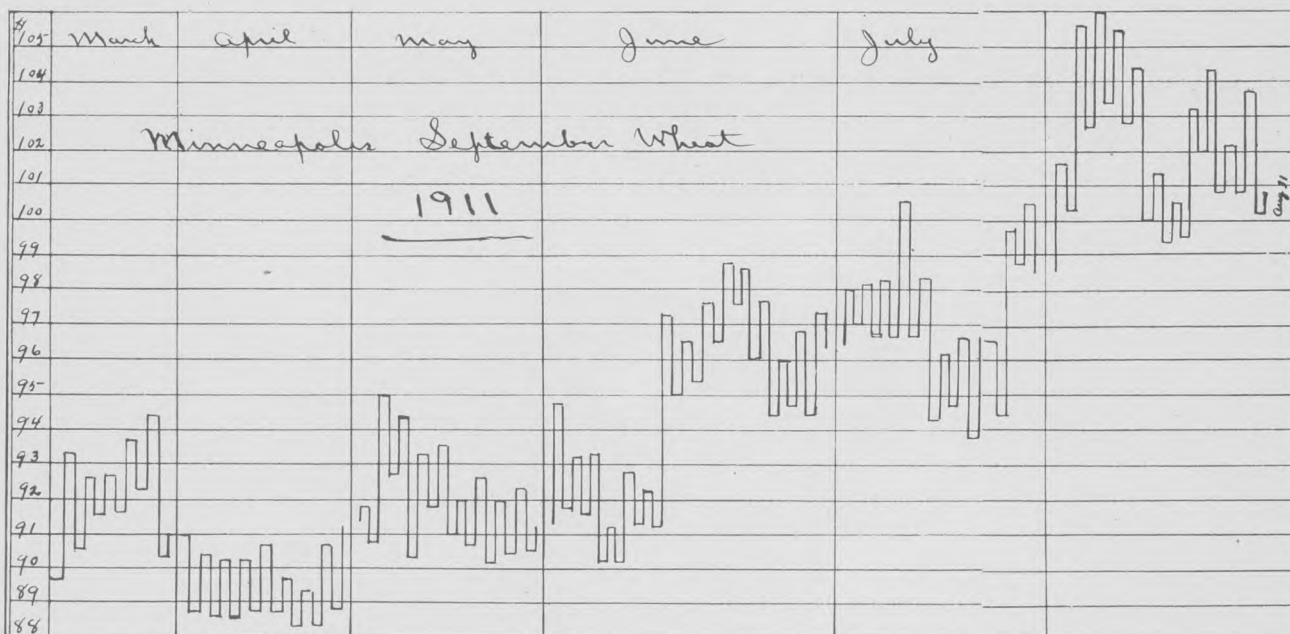 $
105 March April May June July
104
103
102 Minneapolis September Wheat
101
100 1911
99
98
97
96
95
94
93
92
91
90
89
88
Aug 31